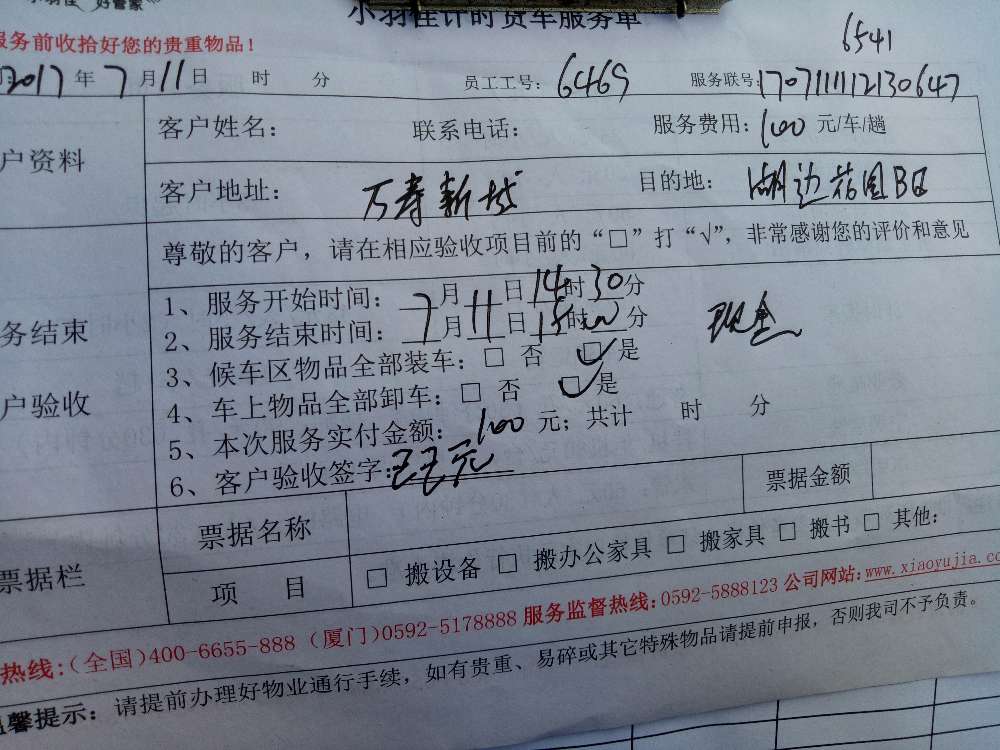 小羽佳 好管家
小羽佳计时货车服务单
服务前收拾好您的贵重物品！
6541
2017年7月11日 时 分 员工工号：6469 服务联号：170711112130647
户资料 客户姓名： 联系电话： 服务费用：100元/车/趟
客户地址：万寿新村 目的地：湖边花园B区
尊敬的客户，请在相应验收项目前的“□”打“√”，非常感谢您的评价和意见
务结束
户验收
1、服务开始时间：7月11日14时30分
2、服务结束时间：7月11日15时00分
现金
3、候车区物品全部装车：□ 否 ☑是
4、车上物品全部卸车：□ 否 ☑是
5、本次服务实付金额：100元；共计 时 分
6、客户验收签字：
票据栏 票据名称 票据金额
项 目 □ 搬设备 □ 搬办公家具 □ 搬家具 □ 搬书 □ 其他：
热线：（全国）400-6655-888（厦门）0592-5178888 服务监督热线：0592-5888123 公司网站：www.xiaoyujia.co
温馨提示：请提前办理好物业通行手续，如有贵重、易碎或其它特殊物品请提前申报，否则我司不予负责。